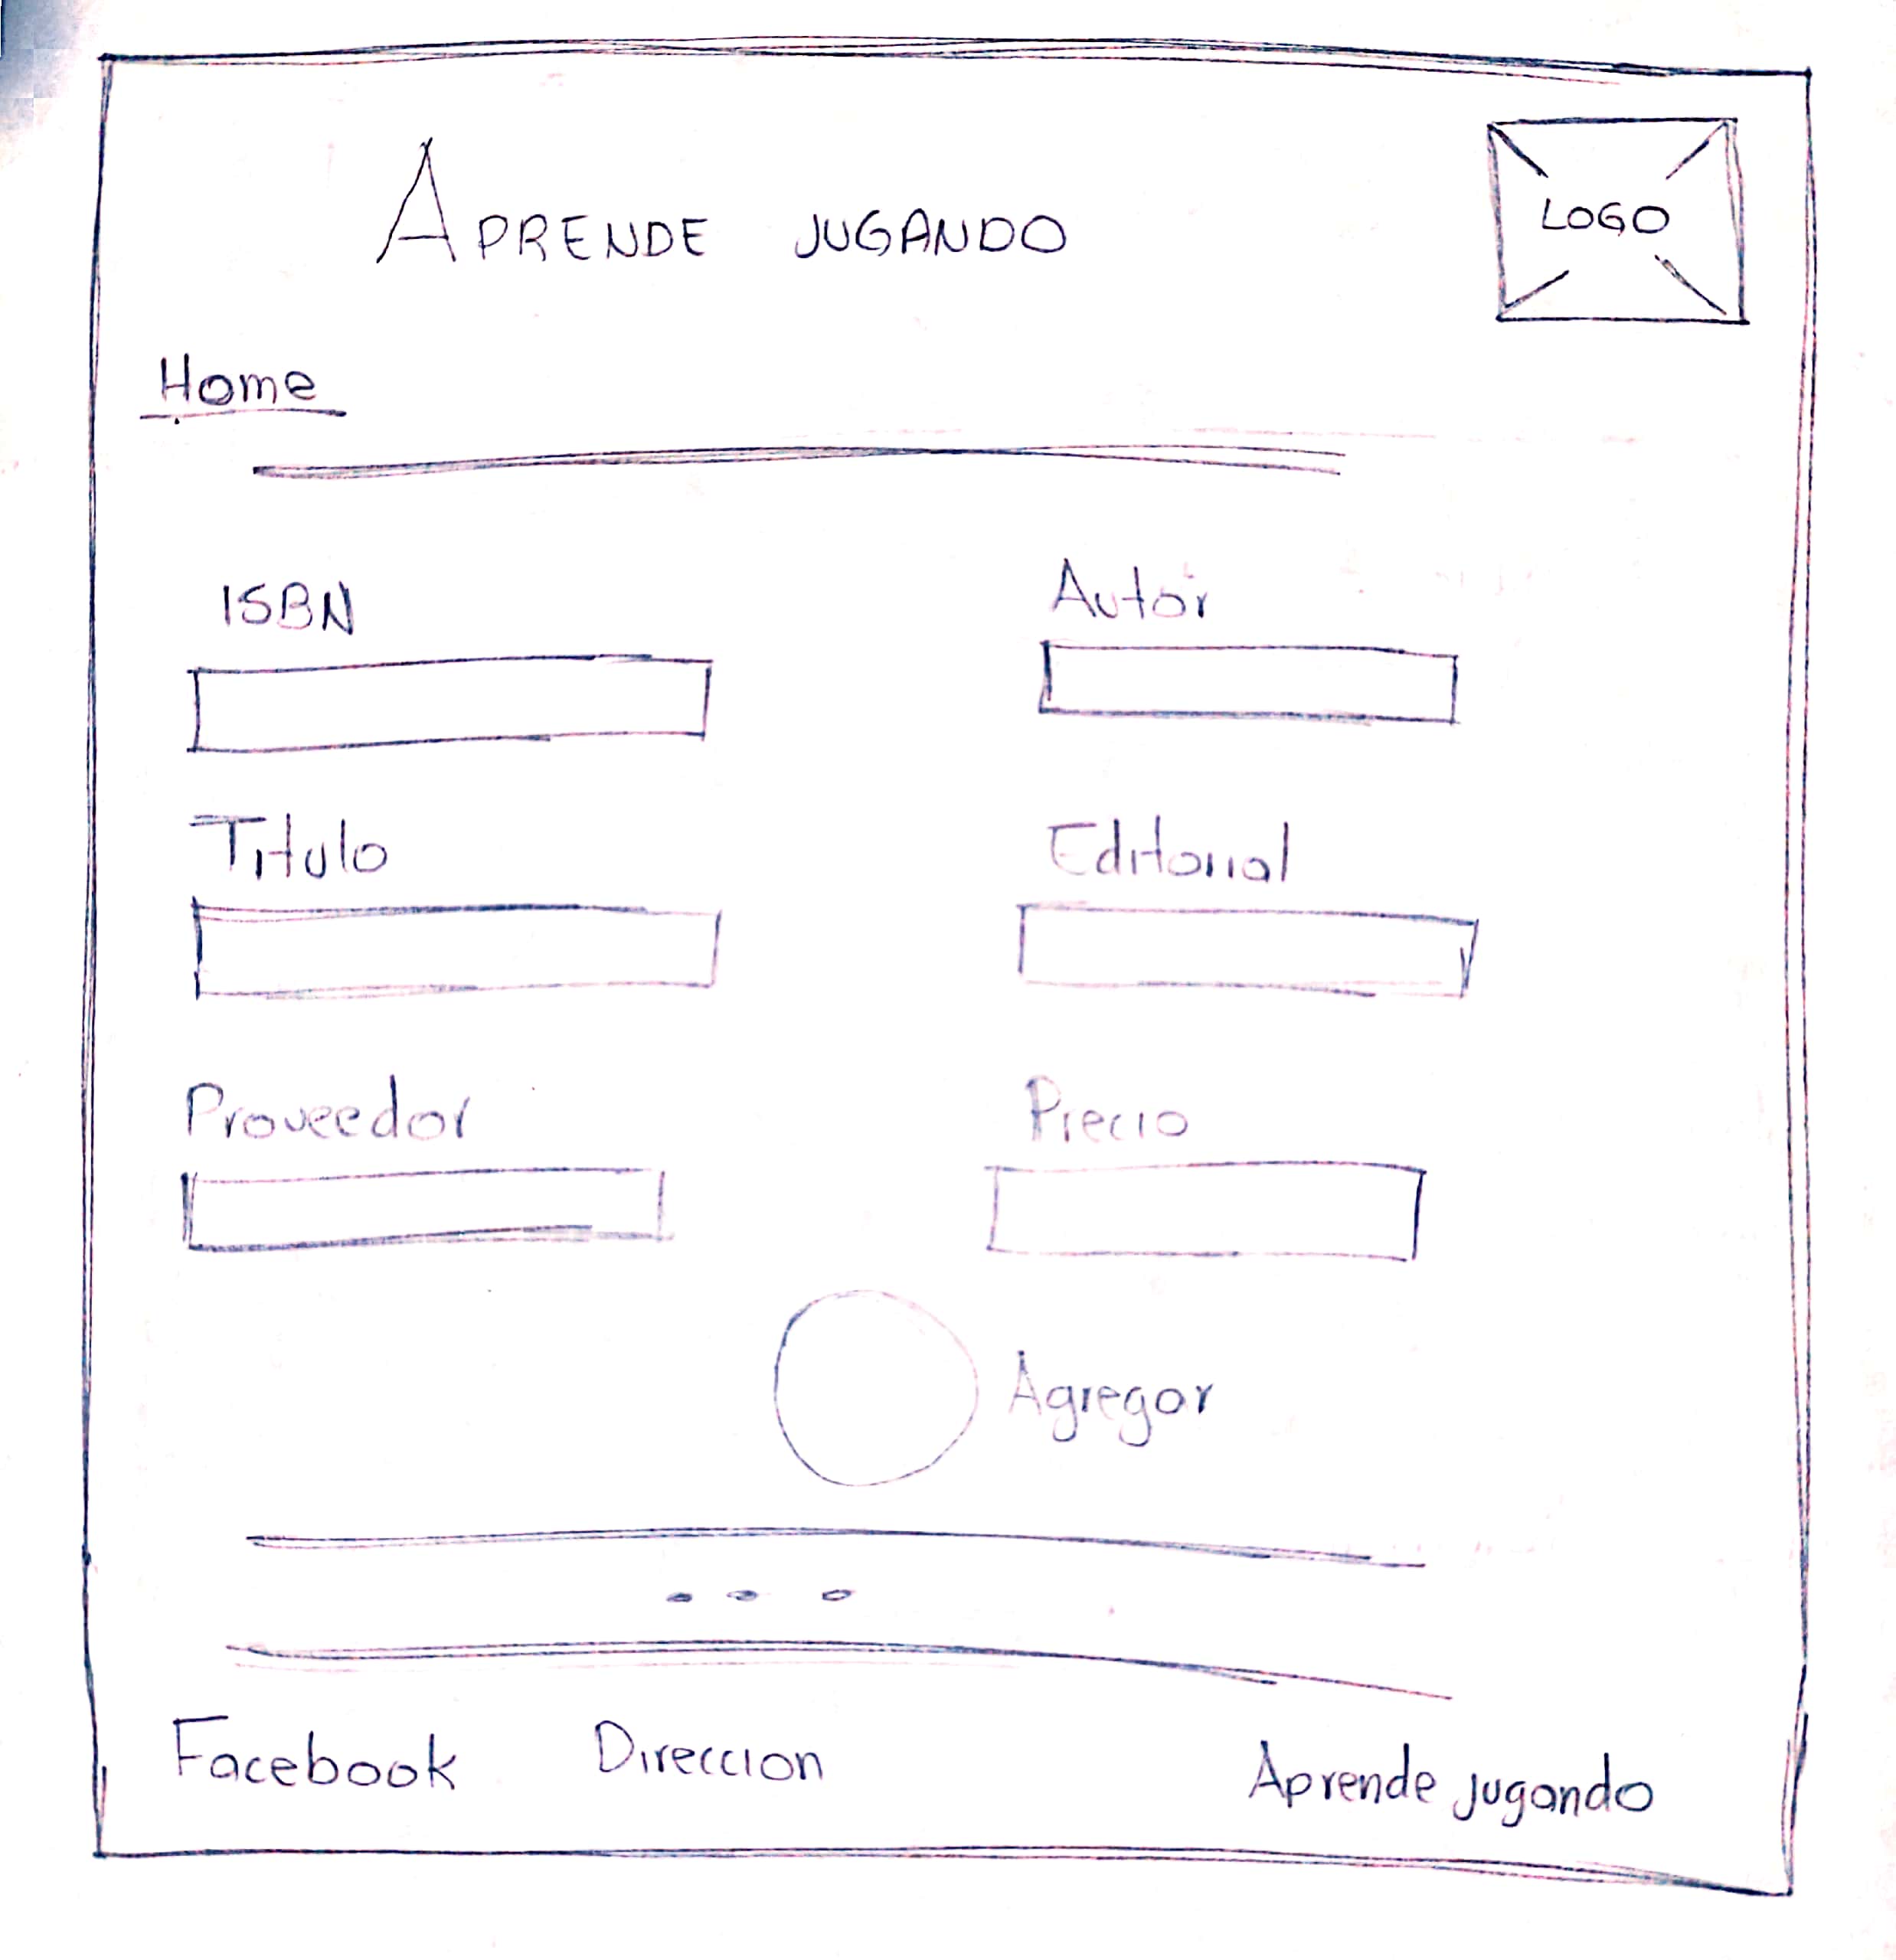 APRENDE JUGANDO
LOGO
Home
ISBN
Autor
Titulo
Editorial
Proveedor
Precio
Agregar
Facebook
Direccion
Aprende jugando